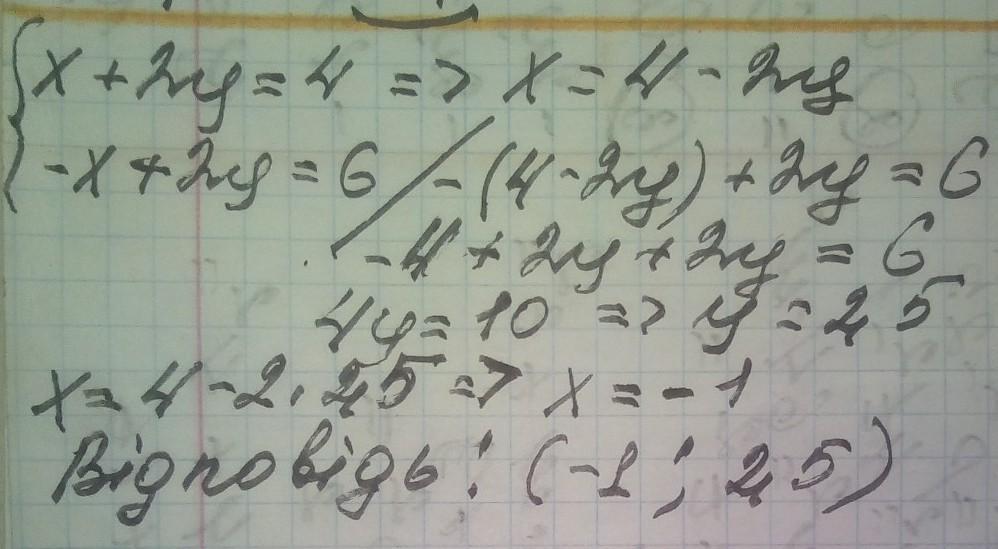 { x + 2y = 4 => x = 4 - 2y
-x + 2y = 6 / -(4 - 2y) + 2y = 6
-4 + 2y + 2y = 6
4y = 10 => y = 2,5
x = 4 - 2 · 2,5 => x = -1
Відповідь: (-1; 2,5)